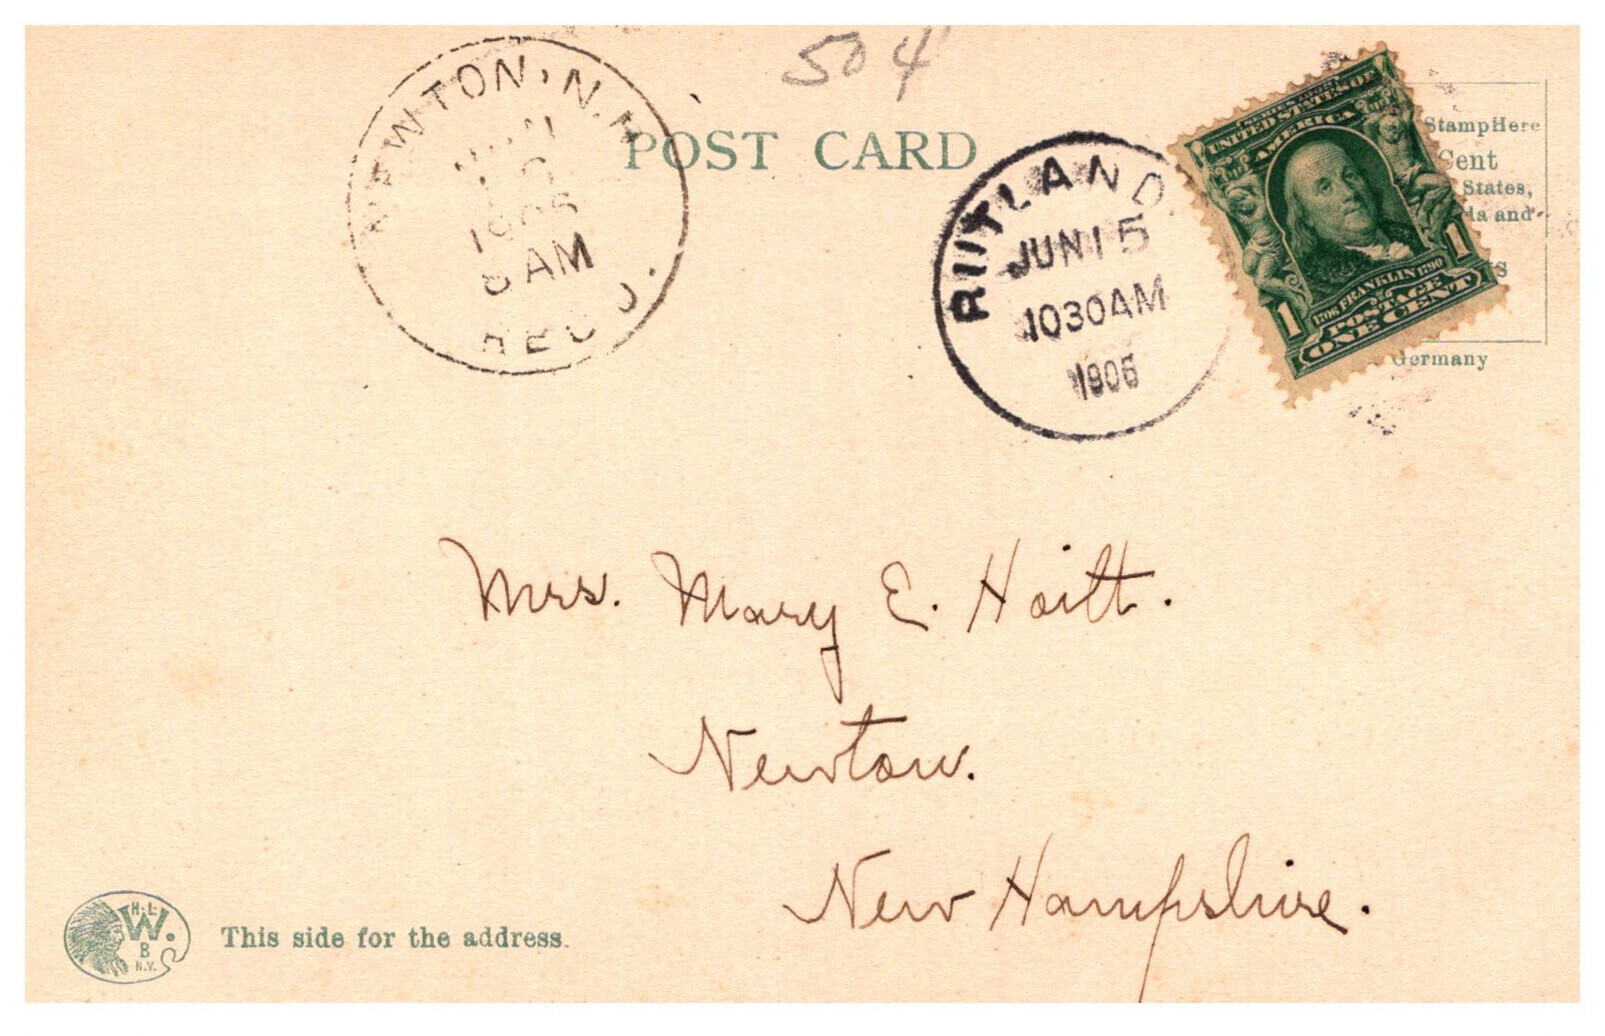 504
NEWTON, N.H.
JUN
1906
8 AM
REC'D.
POST CARD
RUTLAND
JUN 15
1030 AM
1906
SERIES 1902
UNITED STATES OF
AMERICA
1706 FRANKLIN 1790
POSTAGE
1 ONE CENT 1
Stamp Here
Cent
States,
da and
Germany
Mrs. Mary E. Hoitt.
Newton.
New Hampshire.
H.L.
W.
B
N.Y.
This side for the address.